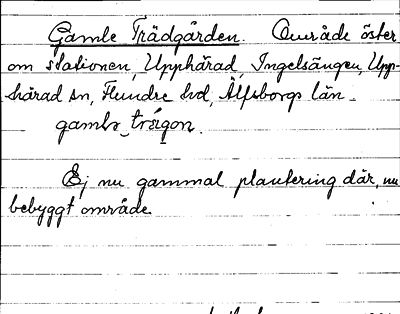 Gamle Trädgården. Område öster
om stationen, Upphärad, Ingelsängen, Upp-
härad sn, Flundre hd, Älfsborgs län.
Ej nu gammal plantering där, nu
bebyggt område.